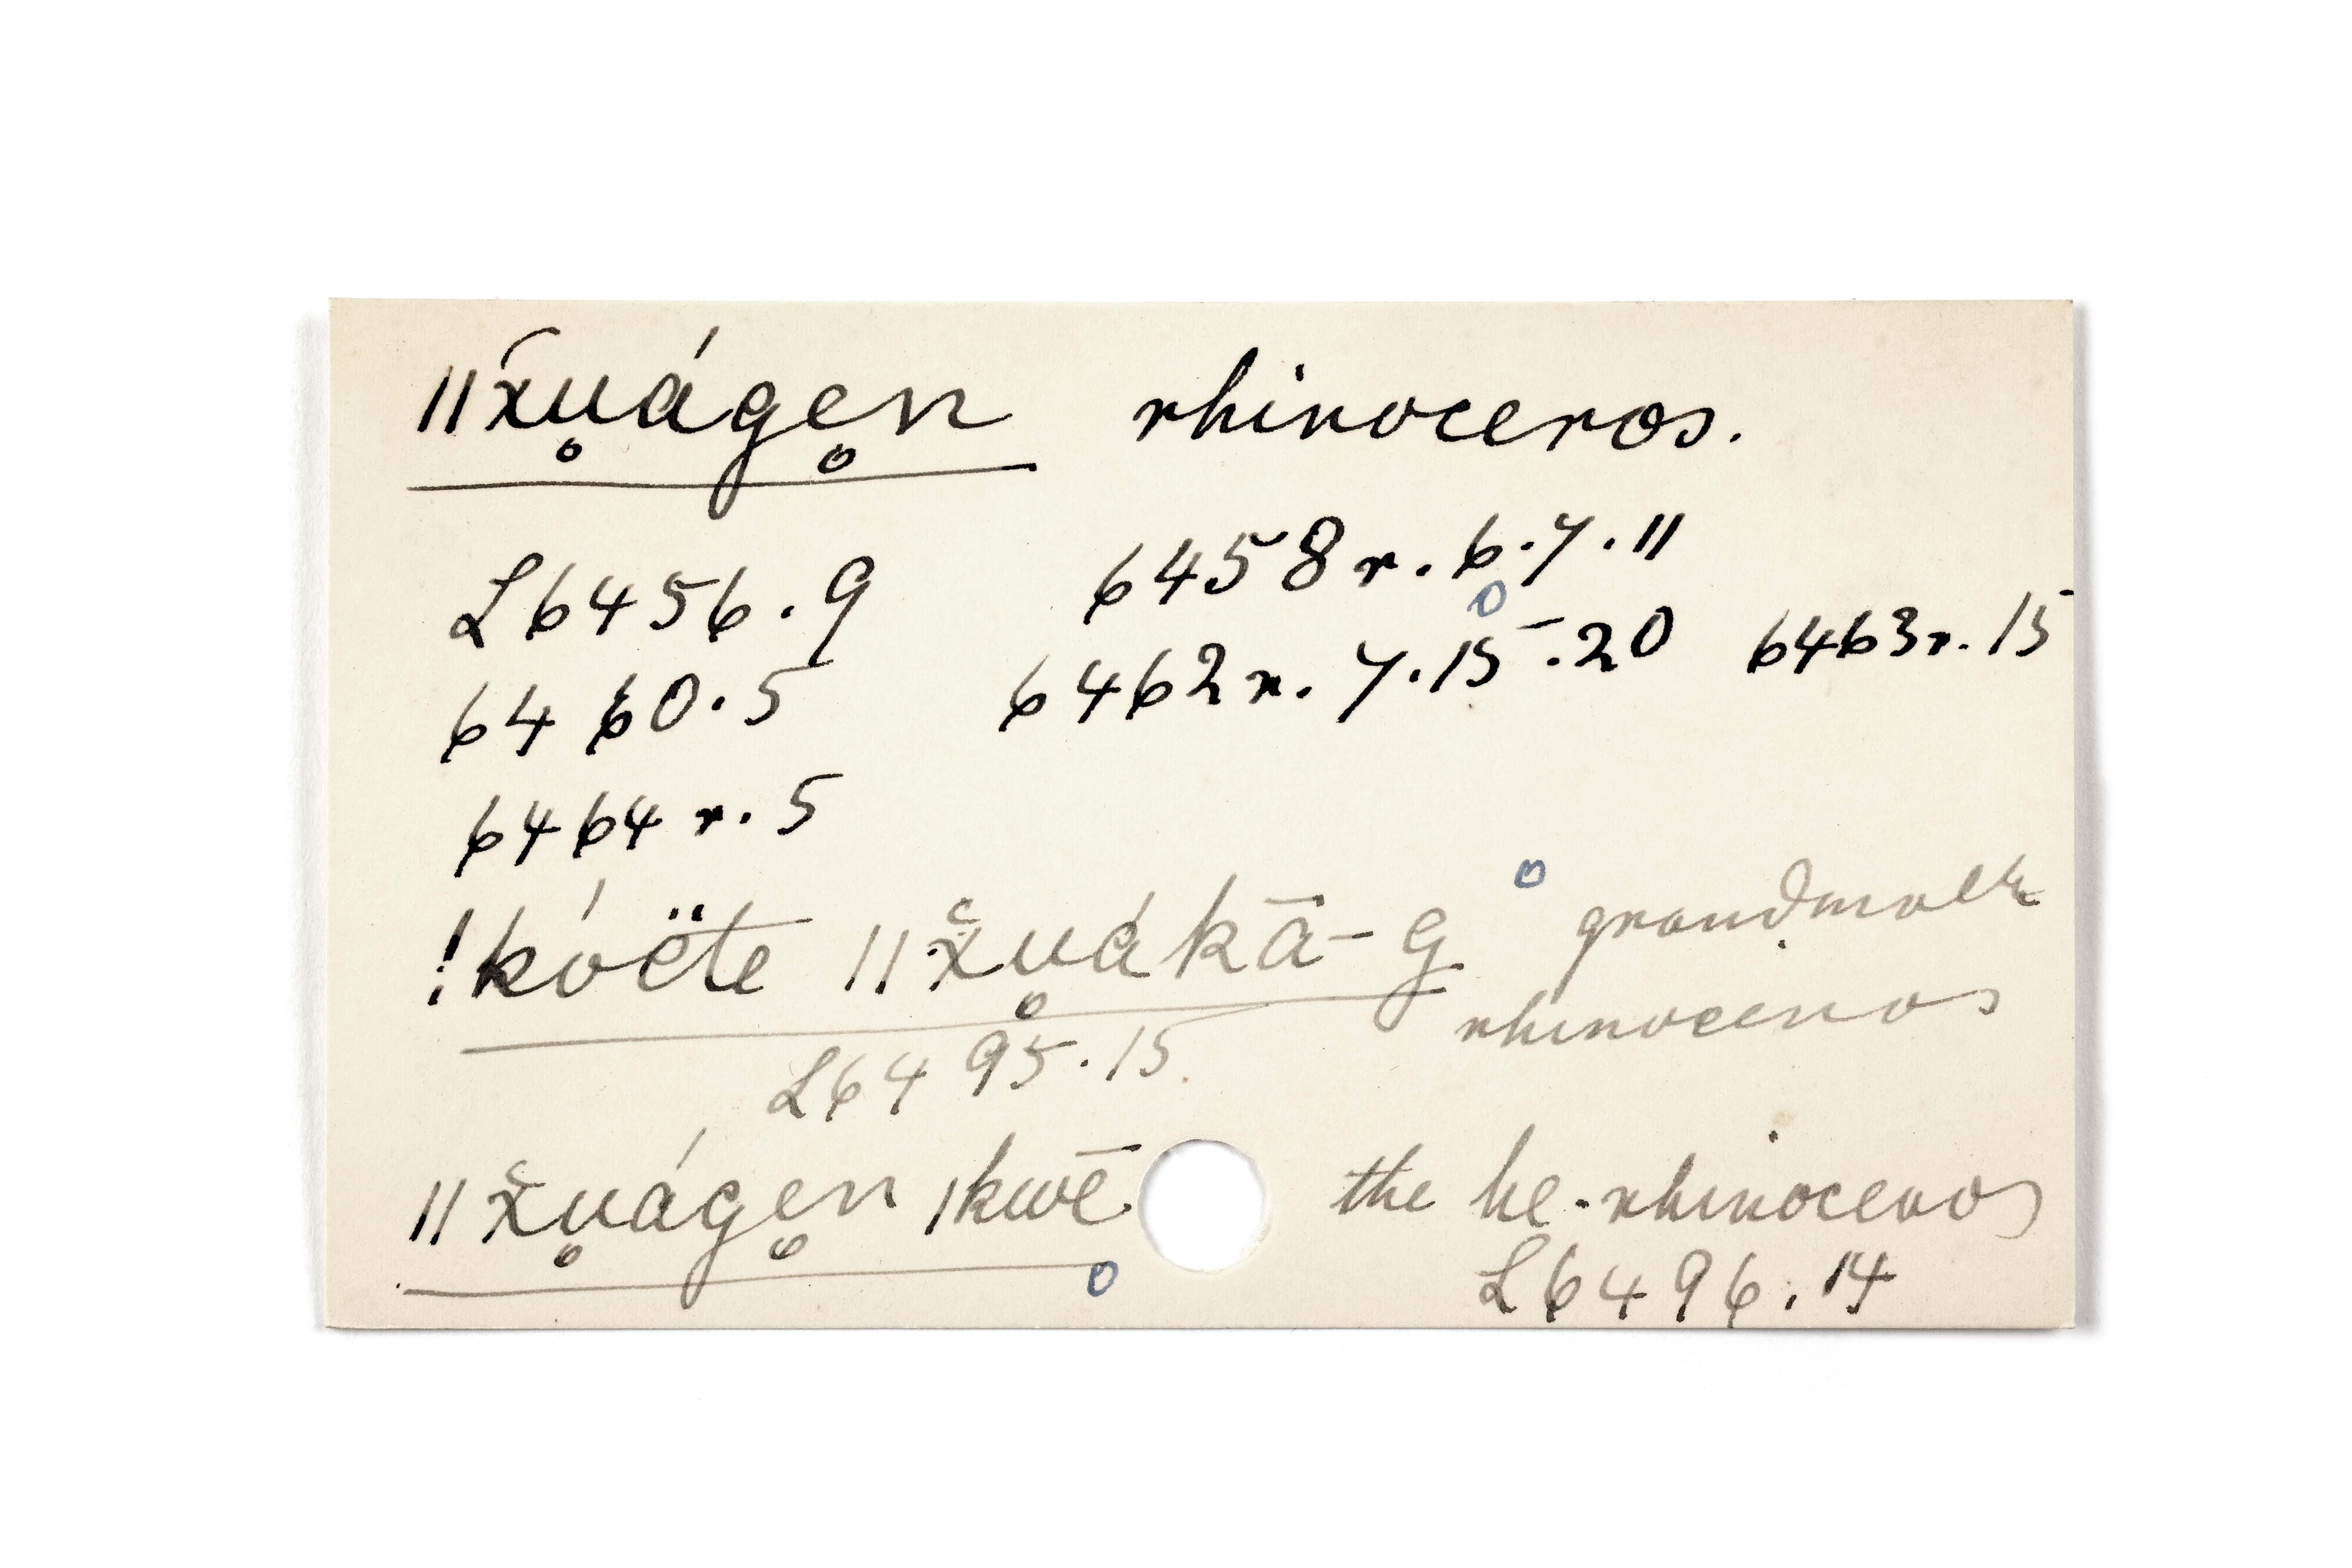 ǁx̆u̥áge̥n rhinoceros.
L6456.9 6458r.6.7.11
6460.5 6462r.7.15.20 6463r.15
6464r.5
!kóëte ǁx̆u̥ákā-g grandmother
rhinoceros
L6495.15.
ǁx̆u̥áge̥n ǀkwē the he-rhinoceros
L6496.14